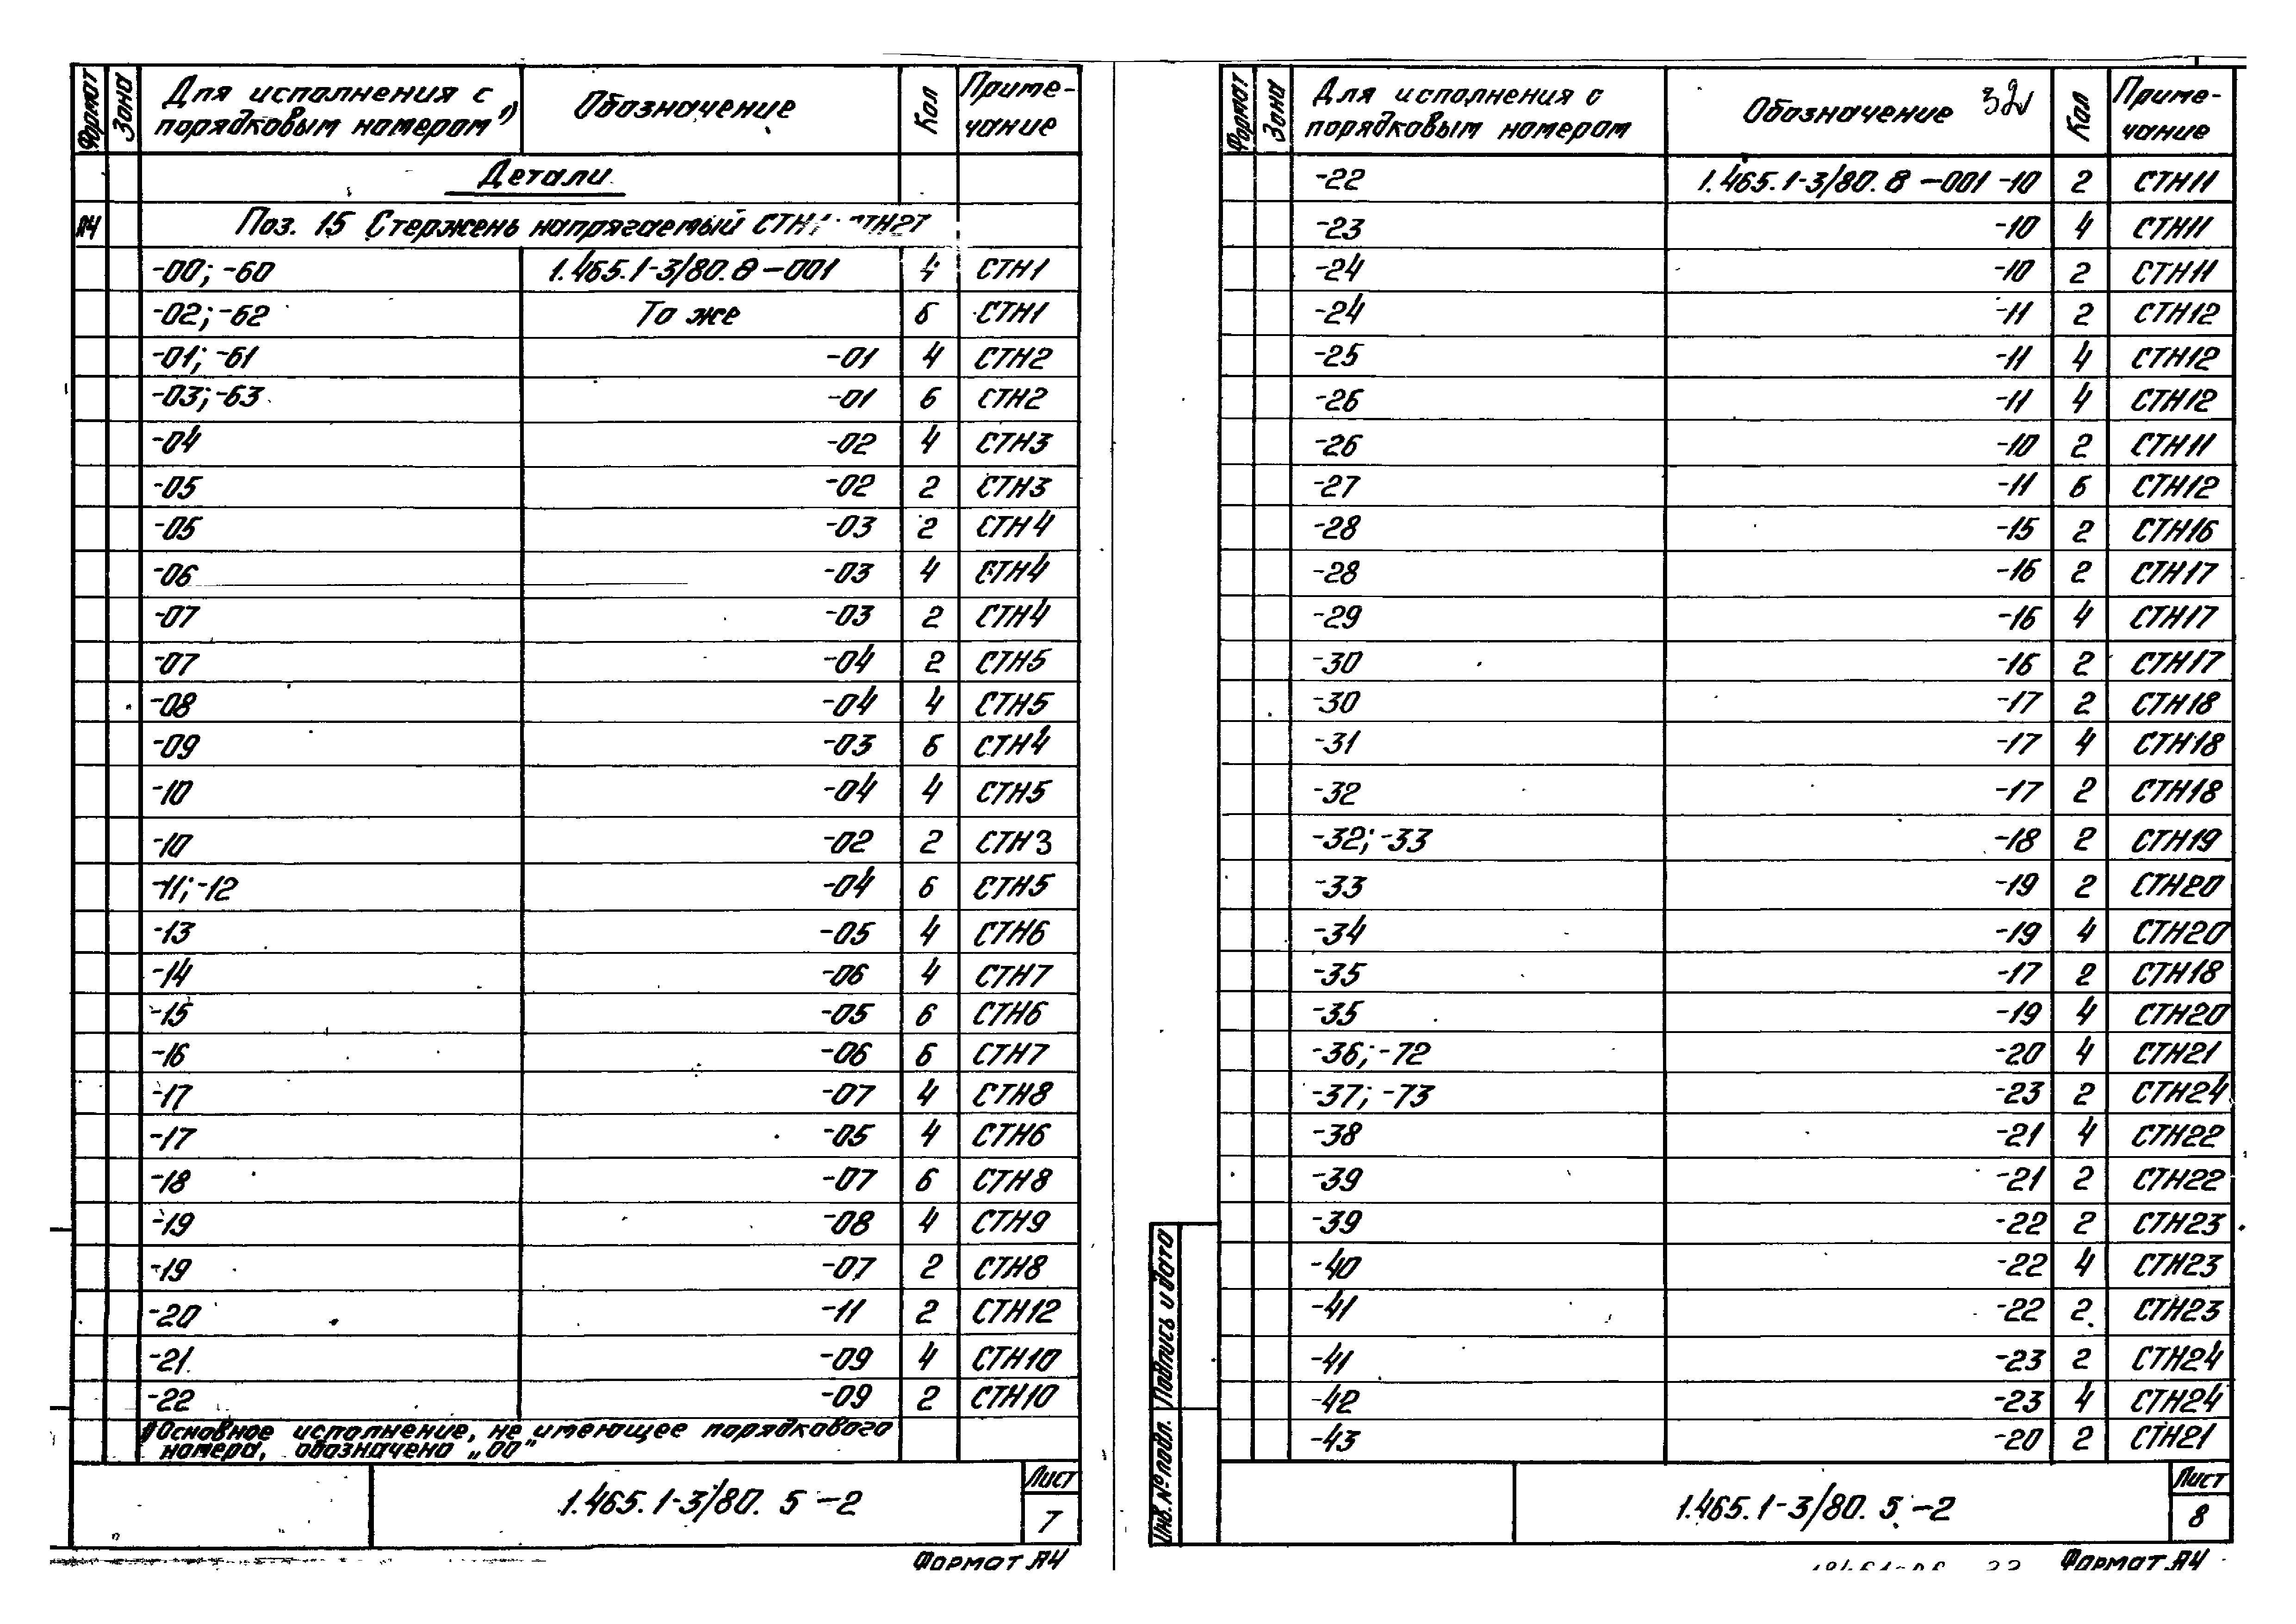 Формат Зона Для исполнения с порядковым номером¹⁾ Обозначение Кол Приме-чание
Детали
А4 Поз. 15 Стержень напрягаемый
-00; -60 1.465.1-3/80.8-001 4 СТН1
-02; -62 То же 6 СТН1
-01; -61 -01 4 СТН2
-03; -63 -01 6 СТН2
-04 -02 4 СТН3
-05 -02 2 СТН3
-05 -03 2 СТН4
-06 -03 4 СТН4
-07 -03 2 СТН4
-07 -04 2 СТН5
-08 -04 4 СТН5
-09 -03 6 СТН4
-10 -04 4 СТН5
-10 -02 2 СТН3
-11; -12 -04 6 СТН5
-13 -05 4 СТН6
-14 -06 4 СТН7
-15 -05 6 СТН6
-16 -06 6 СТН7
-17 -07 4 СТН8
-17 -05 4 СТН6
-18 -07 6 СТН8
-19 -08 4 СТН9
-19 -07 2 СТН8
-20 -11 2 СТН12
-21 -09 4 СТН10
-22 -09 2 СТН10
¹⁾Основное исполнение, не имеющее порядкового
номера, обозначено „00"
1.465.1-3/80. 5-2 Лист 7
Формат А4
Формат Зона Для исполнения с порядковым номером Обозначение Кол Приме-чание
32
-22 1.465.1-3/80.8-001 -10 2 СТН11
-23 -10 4 СТН11
-24 -10 2 СТН11
-24 -11 2 СТН12
-25 -11 4 СТН12
-26 -11 4 СТН12
-26 -10 2 СТН11
-27 -11 6 СТН12
-28 -15 2 СТН16
-28 -16 2 СТН17
-29 -16 4 СТН17
-30 -16 2 СТН17
-30 -17 2 СТН18
-31 -17 4 СТН18
-32 -17 2 СТН18
-32; -33 -18 2 СТН19
-33 -19 2 СТН20
-34 -19 4 СТН20
-35 -17 2 СТН18
-35 -19 4 СТН20
-36; -72 -20 4 СТН21
-37; -73 -23 2 СТН24
-38 -21 4 СТН22
-39 -21 2 СТН22
-39 -22 2 СТН23
-40 -22 4 СТН23
-41 -22 2 СТН23
-41 -23 2 СТН24
-42 -23 4 СТН24
-43 -20 2 СТН21
Инв. № подл. Подпись и дата
1.465.1-3/80. 5-2 Лист 8
Формат А4